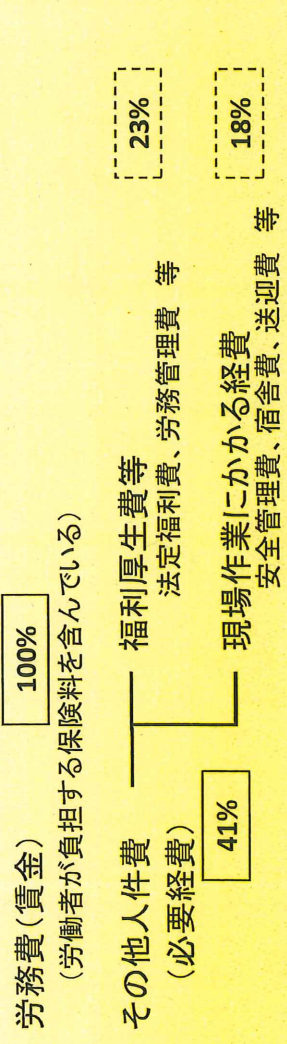 労務費(賃金) 100%
(労働者が負担する保険料を含んでいる)
その他人件費
(必要経費)
41%
福利厚生費等 23%
法定福利費、労務管理費 等
現場作業にかかる経費 18%
安全管理費、宿舎費、送迎費 等